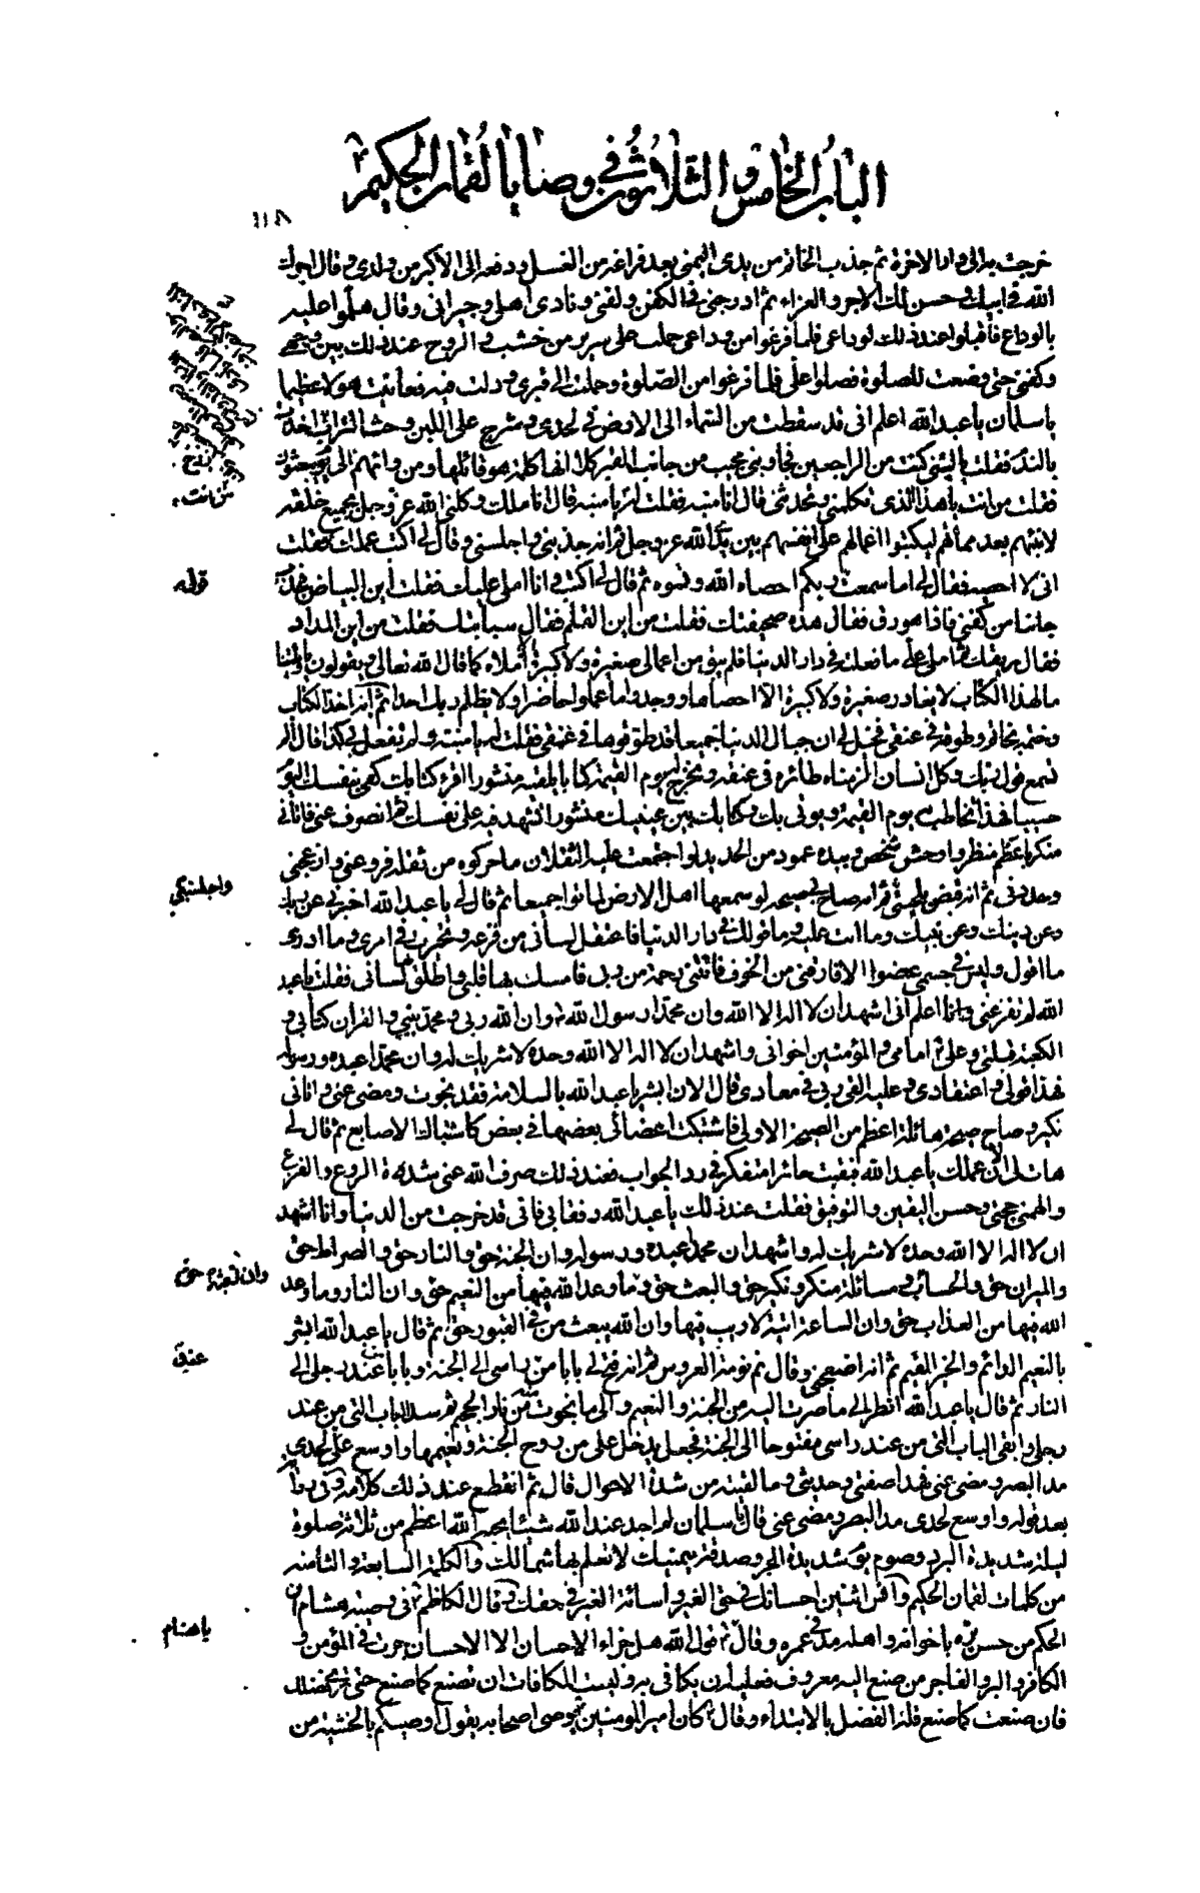 الباب الخامس والثلاثون في وصايا لقمان الحكيم
١١٨
خرجت به الى دار الاخرة ثم جذب الخاتم من يدى اليمنى بعد فراغه من الغسل ودفعه الى الاكبر من ولدى وقال اجرك
الله في ابيك وحسن لك الاجر والعزاء ثم ادرجنى في الكفن ولفنى ونادى اهلى وجيرانى وقال هلموا عليه
بالوداع فاقبلوا عند ذلك لوداعى فلما فرغوا من وداعى حملت على سرير من خشب والروح عند ذلك بين وجهى
وكفنى حتى وضعت للصلوة فصلوا على فلما فرغوا من الصلوة وحملت الى قبرى ودليت فيه فعاينت هولا عظيما
يا سلمان يا عبد الله اعلم انى قد سقطت من السماء الى الارض في لحدى وشرج على اللبن وحثا التراب
فقلت يا ليتنى كنت من الراجعين فجاوبنى مجيب من جانب القبر كلا انها كلمة هو قائلها ومن ورائهم الى يوم يبعثون
فقلت من انت يا هذا الذى تكلمنى وتحدثنى قال انا منبه فقلت له يا منبه قال انا ملك وكلنى الله عز وجل بجميع خلقه
لانبههم بعد مماتهم ليكتبوا اعمالهم على انفسهم بين يدى الله عز وجل ثم انه جذبنى واجلسنى وقال لى اكتب عملك فقلت
انى لا احصيه فقال لى اما سمعت قول ربكم احصاه الله ونسوه ثم قال لى اكتب وانا املى عليك فقلت اين البياض فجذب
جانبا من كفنى فاذا هو ورق فقال هذه صحيفتك فقلت من اين القلم فقال سبابتك فقلت من اين المداد
فقال ريقك ثم املى على ما فعلته في دار الدنيا فلم يبق من اعمالى صغيرة ولا كبيرة الا املاه كما قال الله تعالى ويقولون يا ويلتنا
ما لهذا الكتاب لا يغادر صغيرة ولا كبيرة الا احصاها ووجدوا ما عملوا حاضرا ولا يظلم ربك احدا ثم انه اخذ الكتاب
وختمه بخاتم وطوقه في عنقى فخيل لى ان جبال الدنيا جميعا قد طوقوها في عنقى فقلت له يا منبه ولم تفعل بى كذا قال الم
تسمع قول ربك وكل انسان الزمناه طائره في عنقه ونخرج له يوم القيمة كتابا يلقيه منشورا اقرء كتابك كفى بنفسك اليوم
حسيبا فهذا تخاطب به يوم القيمة ويؤتى بك وكتابك بين عينيك منشورا تشهد فيه على نفسك ثم انصرف عنى فاتانى
منكر باعظم منظر واوحش شخص وبيده عمود من الحديد لو اجتمعت عليه الثقلان ما حركوه من ثقله فروعنى وازعجنى
وهددنى ثم انه قبض بلحيتى ثم انه صاح بى صيحة لو سمعها اهل الارض لماتوا جميعا ثم قال لى يا عبد الله اخبرنى عن ربك
وعن دينك وعن نبيك وما انت عليه وما قولك في دار الدنيا فاعتقل لسانى من فزعه وتحيرت في امرى وما ادرى
ما اقول وليس في جسمى عضو الا فارقنى من الخوف فاتتنى رحمة من ربى فامسك بها قلبى واطلق بها لسانى فقلت يا عبد
الله لم تفزعنى وانما اعلم انى اشهد ان لا اله الا الله وان محمدا رسول الله وان الله ربى ومحمد نبيى والقران كتابى و
الكعبة قبلتى وعلى امامى والمؤمنين اخوانى واشهد ان لا اله الا الله وحده لا شريك له وان محمدا عبده ورسوله
فهذا قولى واعتقادى وعليه القى ربى في معادى قال الان ابشر يا عبد الله بالسلامة فقد نجوت ومضى عنى واتانى
نكير وصاح صيحة هائلة اعظم من الصيحة الاولى فاشتبكت اعضائى بعضها في بعض كاشتباك الاصابع ثم قال لى
هات الان عملك يا عبد الله فبقيت حائرا متفكرا في رد الجواب فعند ذلك صرف الله عنى شدة الروع والفزع
والهمنى حجتى وحسن اليقين والتوفيق فقلت عند ذلك يا عبد الله رفقا بى فانى قد خرجت من الدنيا وانا اشهد
ان لا اله الا الله وحده لا شريك له واشهد ان محمدا عبده ورسوله وان الجنة حق والنار حق والصراط حق
والميزان حق والحساب حق ومسائلة منكر ونكير حق والبعث حق وما وعد الله فيها من النعيم حق وان النار وما وعد
الله فيها من العذاب حق وان الساعة اتية لا ريب فيها وان الله يبعث من في القبور حق ثم قال يا عبد الله ابشر
بالنعيم الدائم والخير المقيم ثم انه اضجعنى وقال نم نومة العروس ثم انه فتح لى بابا من عند راسى الى الجنة وبابا من عند رجلى الى
النار ثم قال يا عبد الله انظر الى ما صرت اليه من الجنة والنعيم والى ما نجوت منه من نار الجحيم ثم سد الباب التى من عند
رجلى وابقى الباب التى من عند راسى مفتوحا الى الجنة فجعل يدخل على من روح الجنة ونعيمها واوسع على لحدى
مد البصر ومضى عنى فهذا صفتى وحديثى وما لقيته من شدة الاهوال قال ثم انقطع عند ذلك كلامه
بعد قوله واوسع لحدى مد البصر ومضى عنى قال يا سلمان لم اجد عند الله شيئا يحبه الله اعظم من ثلاثة صلوة
ليلة شديدة البرد وصوم يوم شديد الحر وصدقة بيمينك لا تعلم بها شمالك والكلمة السابعة والثامنة
من كلمات لقمان الحكيم وانس اثنين احسانك في حق الغير واسائة الغير في حقك قال الكاظم في وصيته هشام بن
الحكم من حسن بره باخوانه واهله مد في عمره وقال قول الله هل جزاء الاحسان الا الاحسان جرت في المؤمن و
الكافر والبر والفاجر من صنع اليه معروف فعليه ان يكافى به وليست المكافات ان تصنع كما صنع حتى ترى فضلك
فان صنعت كما صنع فله الفضل بالابتداء وقال كان امير المومنين يوصى اصحابه يقول اوصيكم بالخشية من
من انت
قوله
واجلسنى
وان الجنة حق
عنق
يا هشام